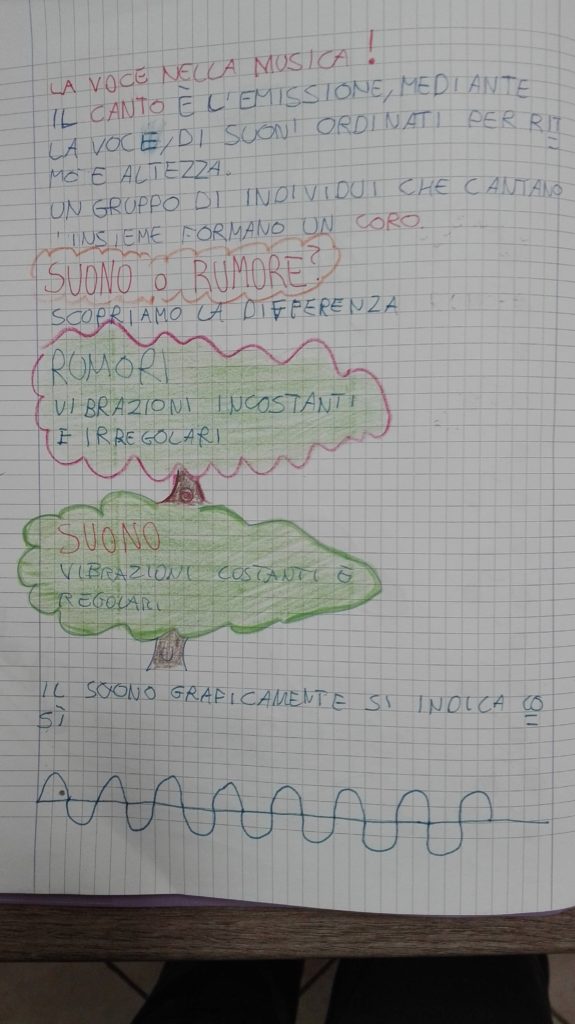 LA VOCE NELLA MUSICA!
IL CANTO È L'EMISSIONE, MEDIANTE
LA VOCE, DI SUONI ORDINATI PER RIT
MO E ALTEZZA.
UN GRUPPO DI INDIVIDUI CHE CANTANO
INSIEME FORMANO UN CORO.
SUONO o RUMORE?
SCOPRIAMO LA DIFFERENZA
RUMORI
VIBRAZIONI INCOSTANTI
E IRREGOLARI
SUONO
VIBRAZIONI COSTANTI E
REGOLARI
IL SUONO GRAFICAMENTE SI INDICA CO
SÌ